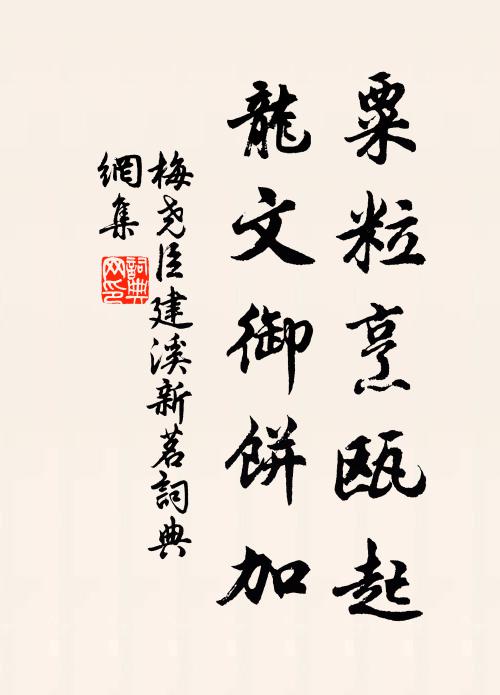 粟粒烹瓯起
龍文御餅加
梅尧臣建溪新茗詞典
網集
詞典
网印